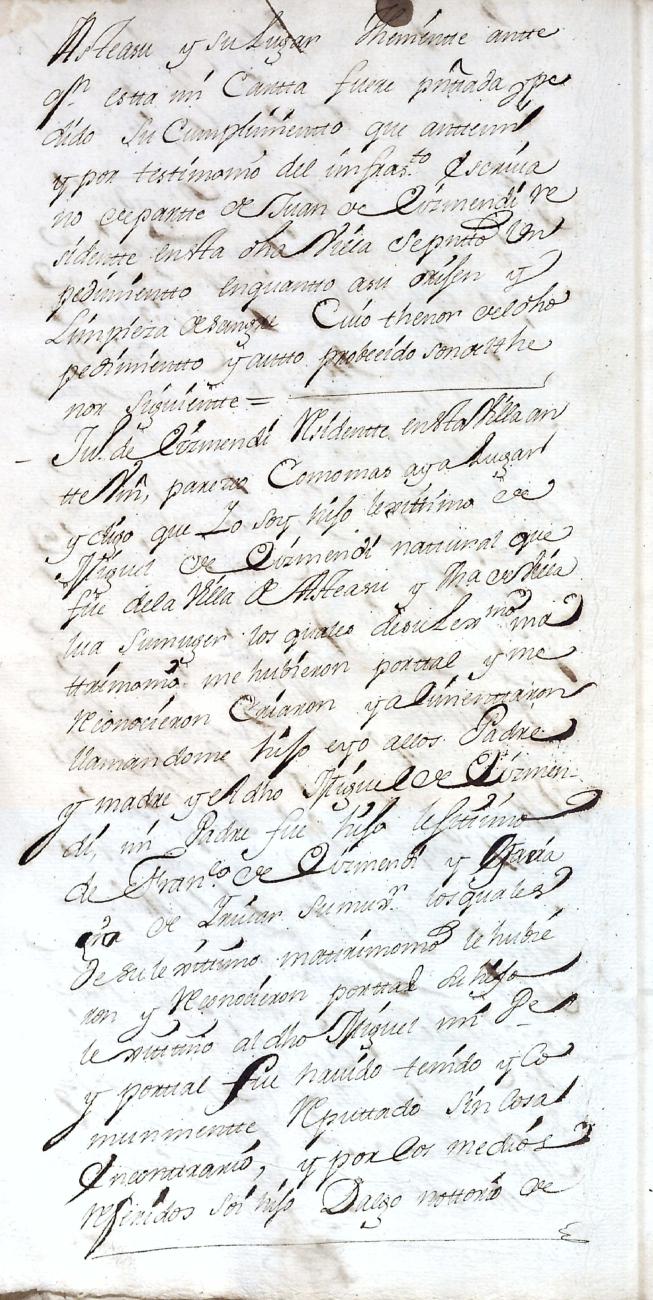 Asteasu y su Lugar theniente antte
qn esta mi Cartta fuere prntada y pe
dido su Cumplimientto que antte mi
y por testimonio del infrasto Escriva
no de partte de Juan de Eizmendi re
sidentte en sta dha Villa se prntto Un
pedimientto en quantto a su orijen y
Limpieza de sangre Cuio thenor del dho
pedimientto y autto probeido son del the
nor siguientte =
Jun. de Eizmendi Residentte en sta Villa an
tte Vm, parezco Como mas aya Lugar
y digo que Yo soy hijo lexittimo de
Miguel de Eizmendi nattural que
fue de la Villa de Asteasu y
su muger los quales de su Lexmo ma
ttrimonio me hubieron por ttal y me
Reconocieron Criaron y alimenttaron
llamandome hijo e yo a ellos Padre
y madre y el dho Miguel de Eizmen
di, mi Padre fue hijo lexittimo
de Franco de Eizmendi y Maria
de Yruzar su mugr. los quales
de su lexittimo mattrimonio le hubie
ron y Reconocieron por ttal su hijo
lexittimo al dho Miguel mi Pe
y por tal fue havido tenido y Co
munmentte Reputtado sin Cosa
En contrario, y por los medios
Referidos soi hijo Dalgo nottorio de